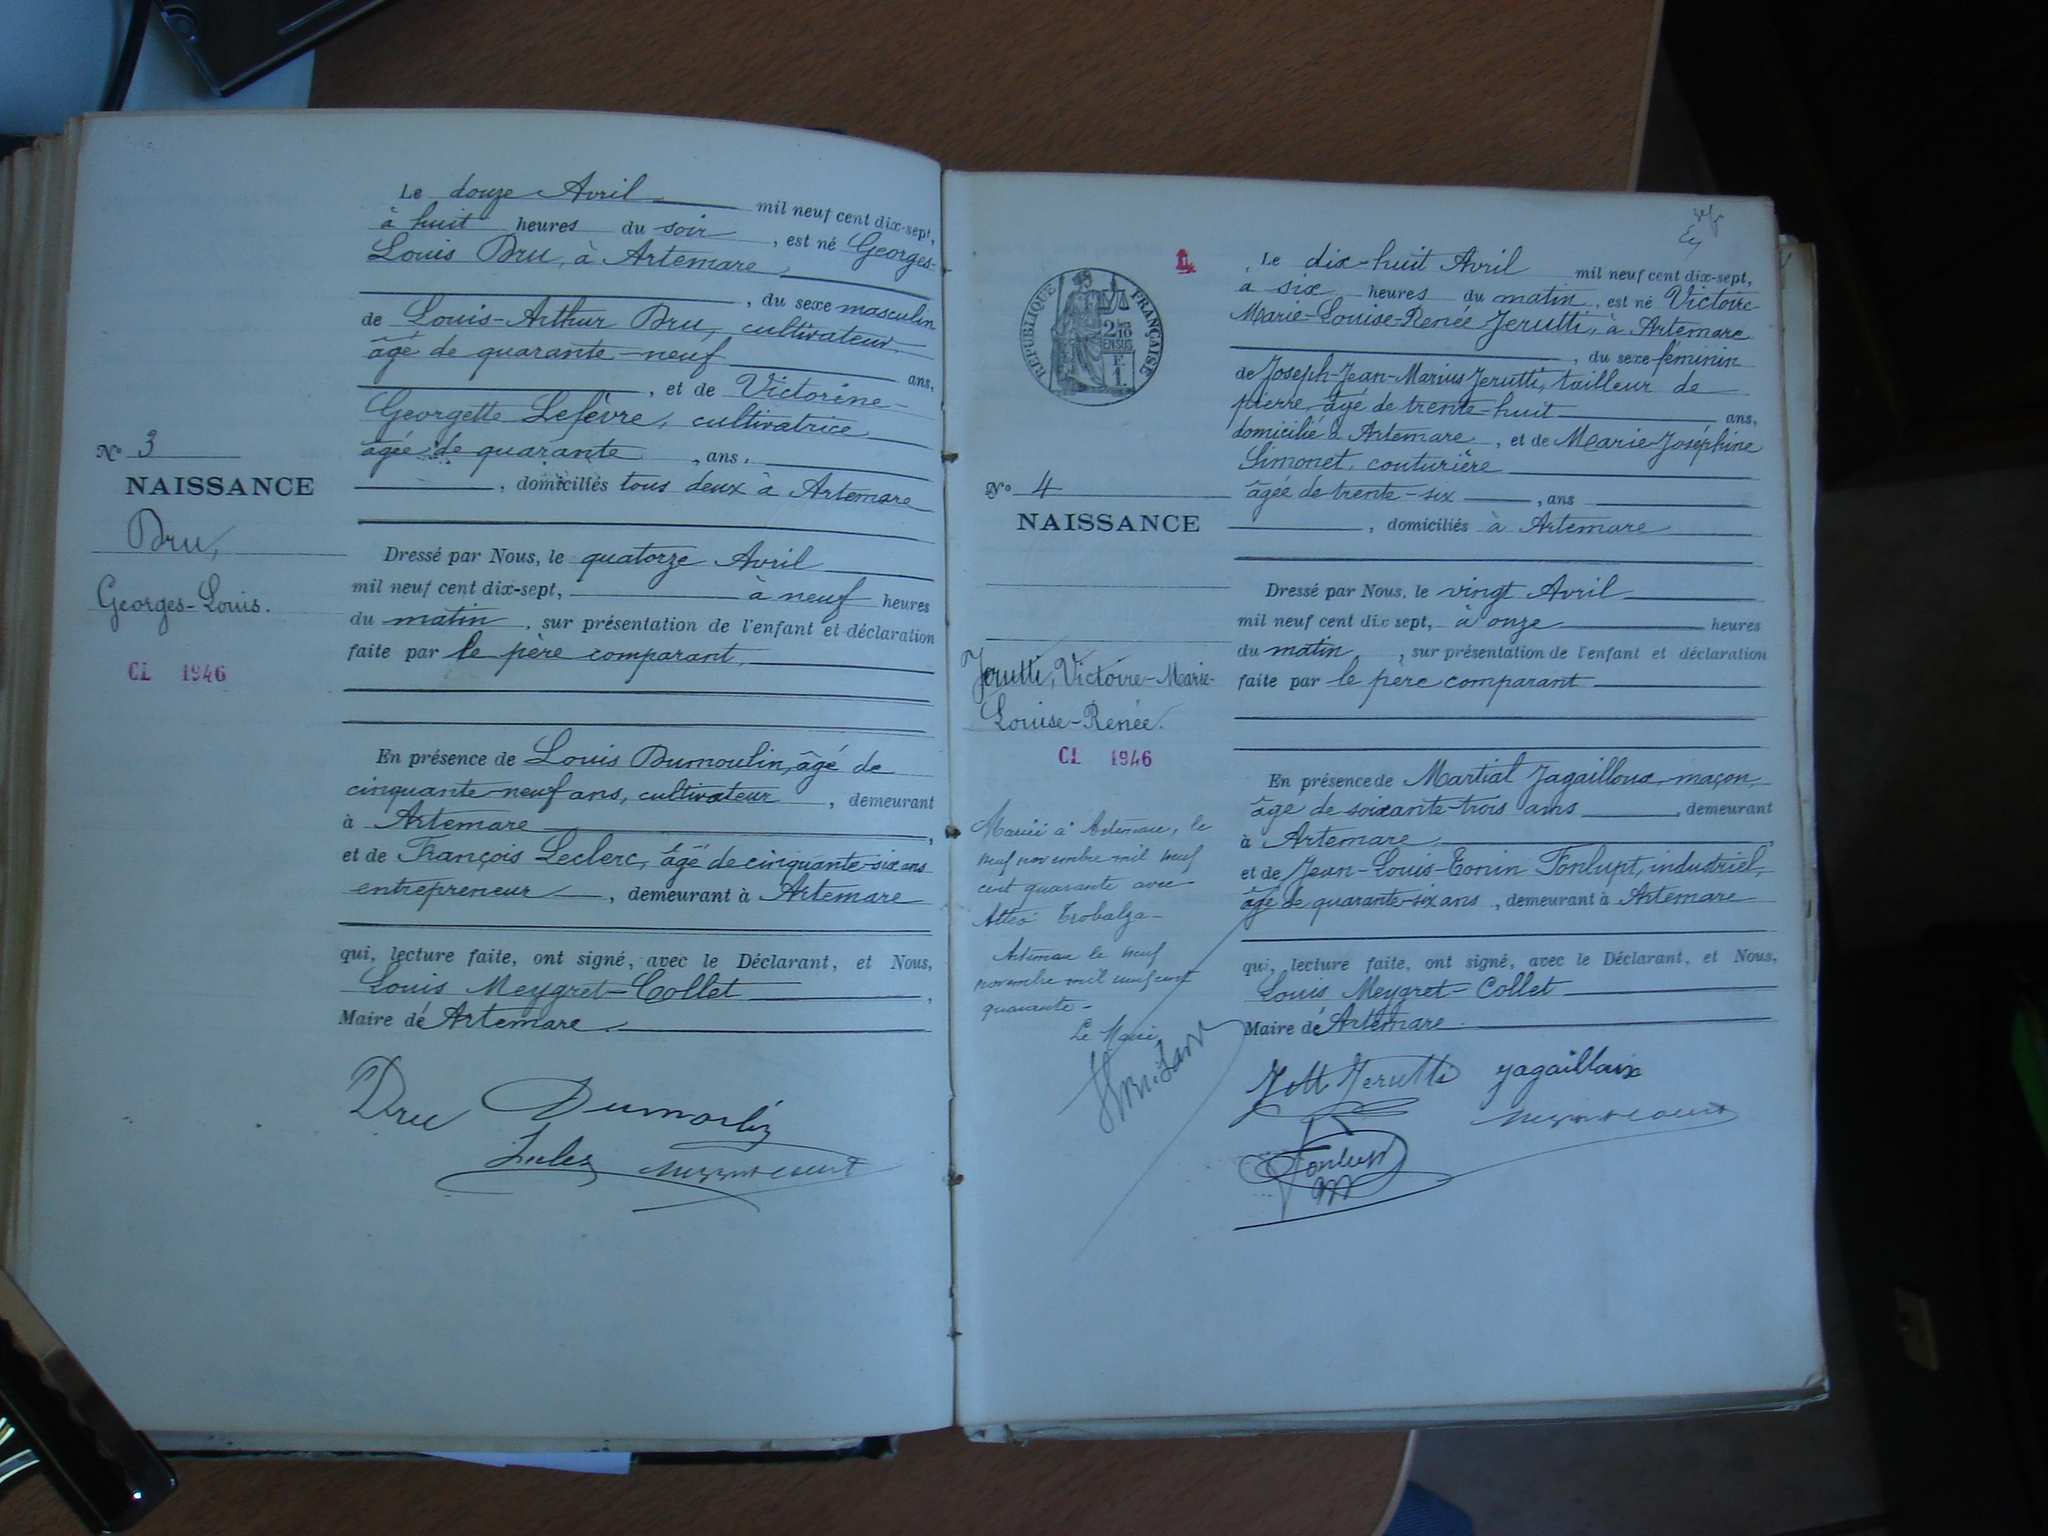 Le douze Avril mil neuf cent dix-sept,
à huit heures du soir, est né Georges-
Louis Dru, à Artemare,
, du sexe masculin
de Louis-Arthur Dru, cultivateur,
âgé de quarante-neuf ans,
, et de Victorine-
Georgette Lefèvre, cultivatrice
âgée de quarante, ans,
, domiciliés tous deux à Artemare
Dressé par Nous, le quatorze Avril
mil neuf cent dix-sept, à neuf heures
du matin, sur présentation de l'enfant et déclaration
faite par le père comparant,
En présence de Louis Dumoulin, âgé de
cinquante-neuf ans, cultivateur, demeurant
à Artemare,
et de François Leclerc, âgé de cinquante-six ans
entrepreneur, demeurant à Artemare
qui, lecture faite, ont signé, avec le Déclarant, et Nous,
Louis Meygret-Collet,
Maire de Artemare.
Dru Dumoulin
N° 3
NAISSANCE
Dru,
Georges-Louis.
CL 1946
1
RÉPUBLIQUE FRANÇAISE
F.
1.
Le dix-huit Avril mil neuf cent dix-sept,
à six heures du matin, est né Victoire-
Marie-Louise-Renée Jerutti, à Artemare
, du sexe féminin
de Joseph-Jean-Marius Jerutti, tailleur de
pierre, âgé de trente-huit ans,
domicilié à Artemare, et de Marie-Joséphine
Simonet, couturière
âgée de trente-six, ans
, domiciliés à Artemare
Dressé par Nous, le vingt Avril
mil neuf cent dix sept, à onze heures
du matin, sur présentation de l'enfant et déclaration
faite par le père comparant
En présence de Martial Jagailloux, maçon,
âgé de soixante-trois ans, demeurant
à Artemare,
et de Jean-Louis-Tonin Fonlupt, industriel,
âgé de quarante-six ans, demeurant à Artemare
qui, lecture faite, ont signé, avec le Déclarant, et Nous,
Louis Meygret-Collet
Maire de Artemare.
Jerutti Jagailloux
Fonlupt
N° 4
NAISSANCE
Jerutti, Victoire-Marie-
Louise-Renée.
CL 1946
Mariée à Artemare, le
neuf novembre mil neuf
cent quarante avec
Trobalza
Artemare le neuf
novembre mil neuf cent
quarante
Le Maire